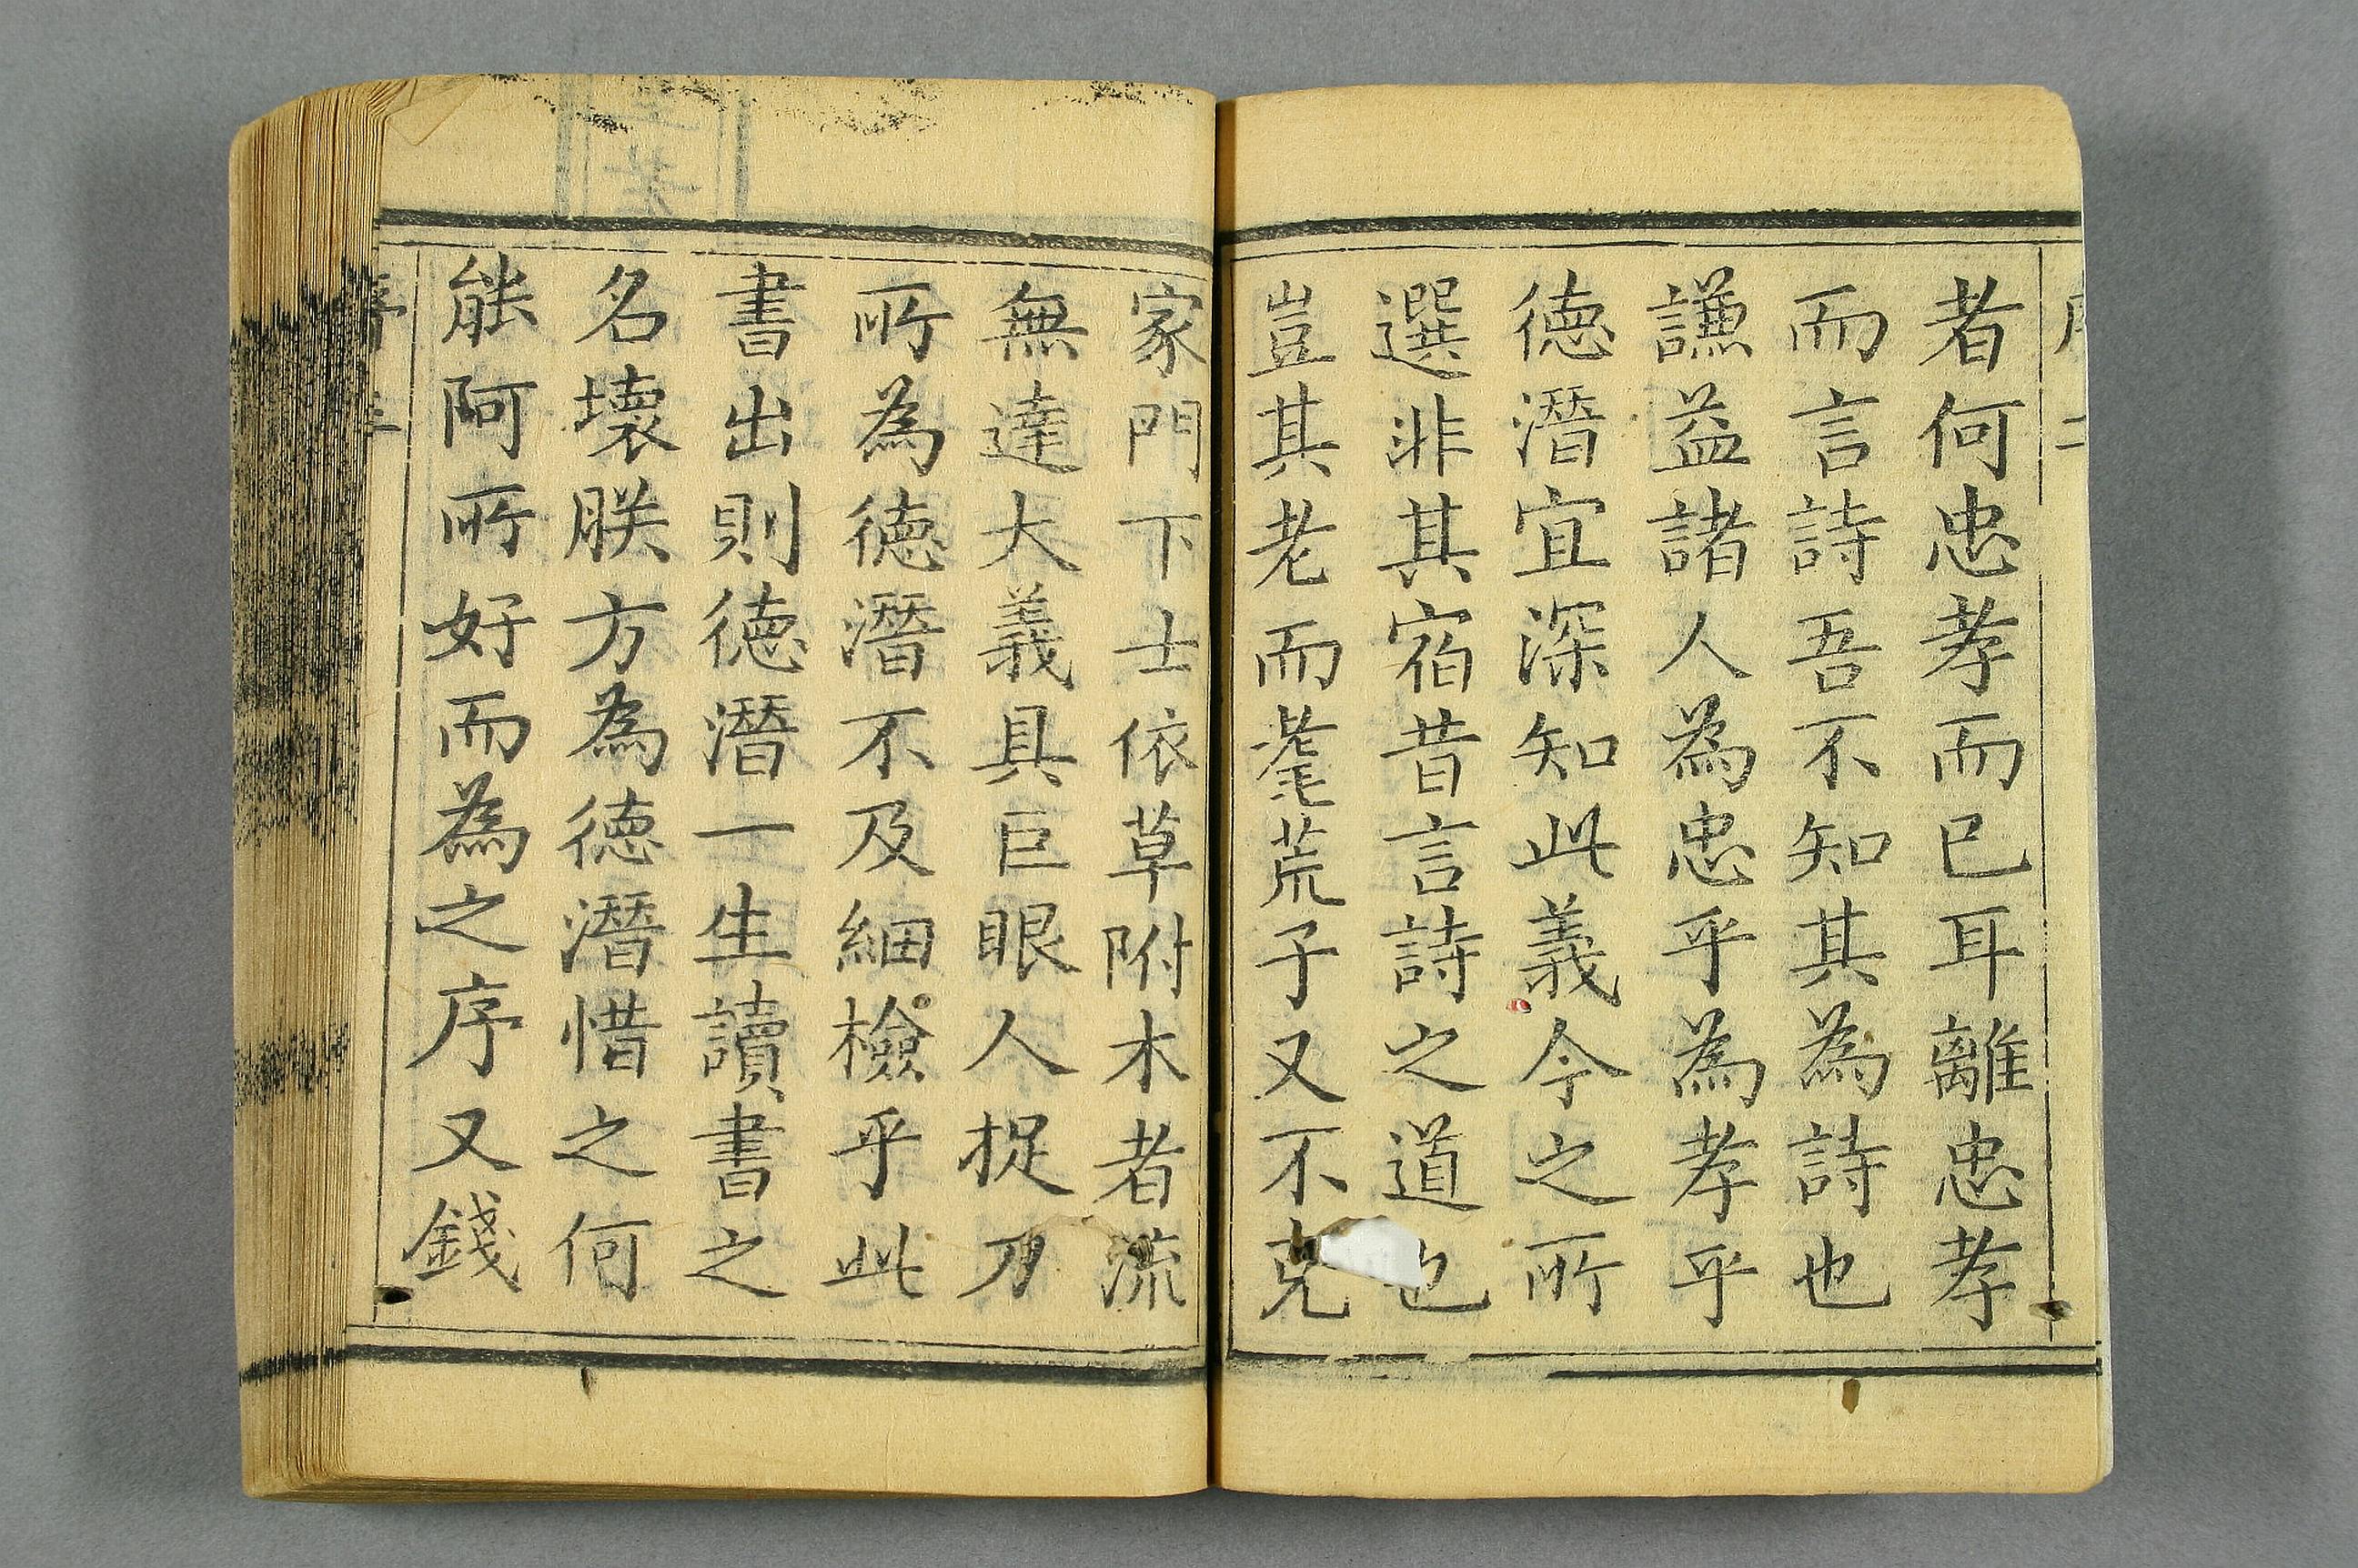 者何忠孝而已耳離忠孝
而言詩吾不知其為詩也
謙益諸人為忠乎為孝乎
德潛宜深知此義今之所
選非其宿昔言詩之道也
豈其老而耄荒子又不克
家門下士依草附木者流
無達大義具巨眼人捉刀
所為德潛不及細檢乎此
書出則德潛一生讀書之
名壞朕方為德潛惜之何
能阿所好而為之序又錢